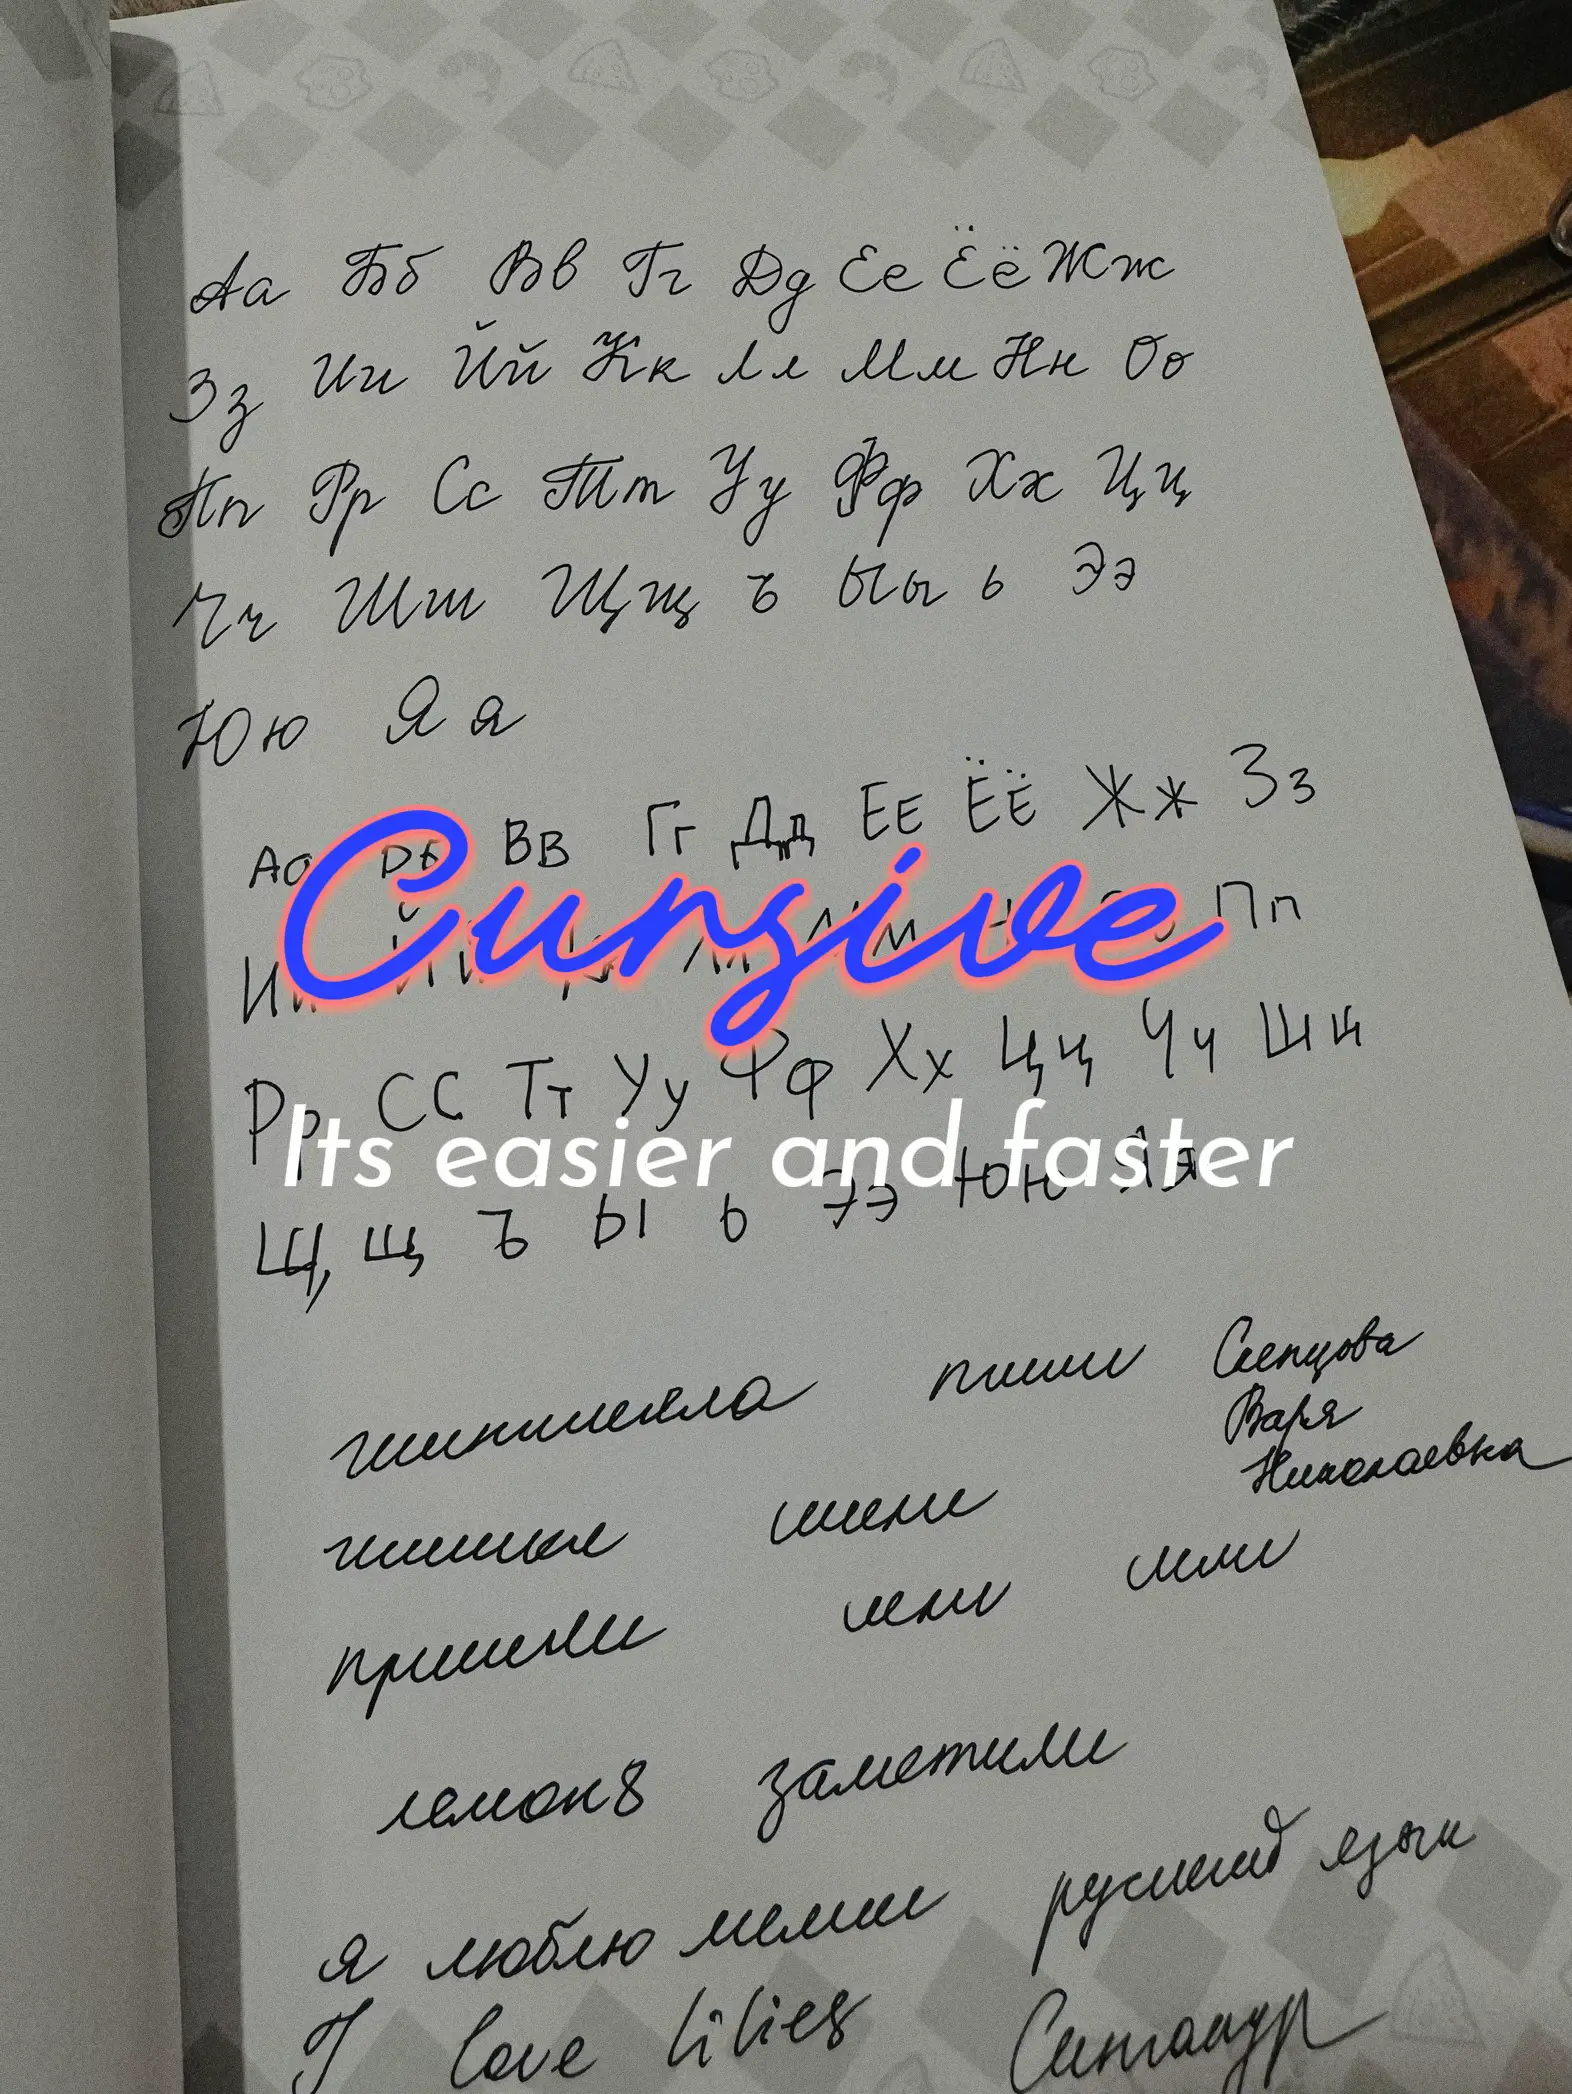 Аа Бб Вв Гг Дд Ее Ёё Жж
Зз Ии Йй Кк Лл Мм Нн Оо
Пп Рр Сс Тт Уу Фф Хх Цц
Чч Шш Щщ ъ Ыы ь Ээ
Юю Яя
Аа Бб Вв Гг Дд Ее Ёё Жж Зз
Cursive
Ии Йй Лл Мм Пп
Рр Сс Тт Уу Фф Хх Цц Чч Шш
Its easier and faster
Щщ Ъ Ы Ь Ээ Юю Яя
шиншилла пиши Слепцова
Варя
Николаевна
шишки
пришили
лемон8 заметили
я люблю русский язык
I love lilies